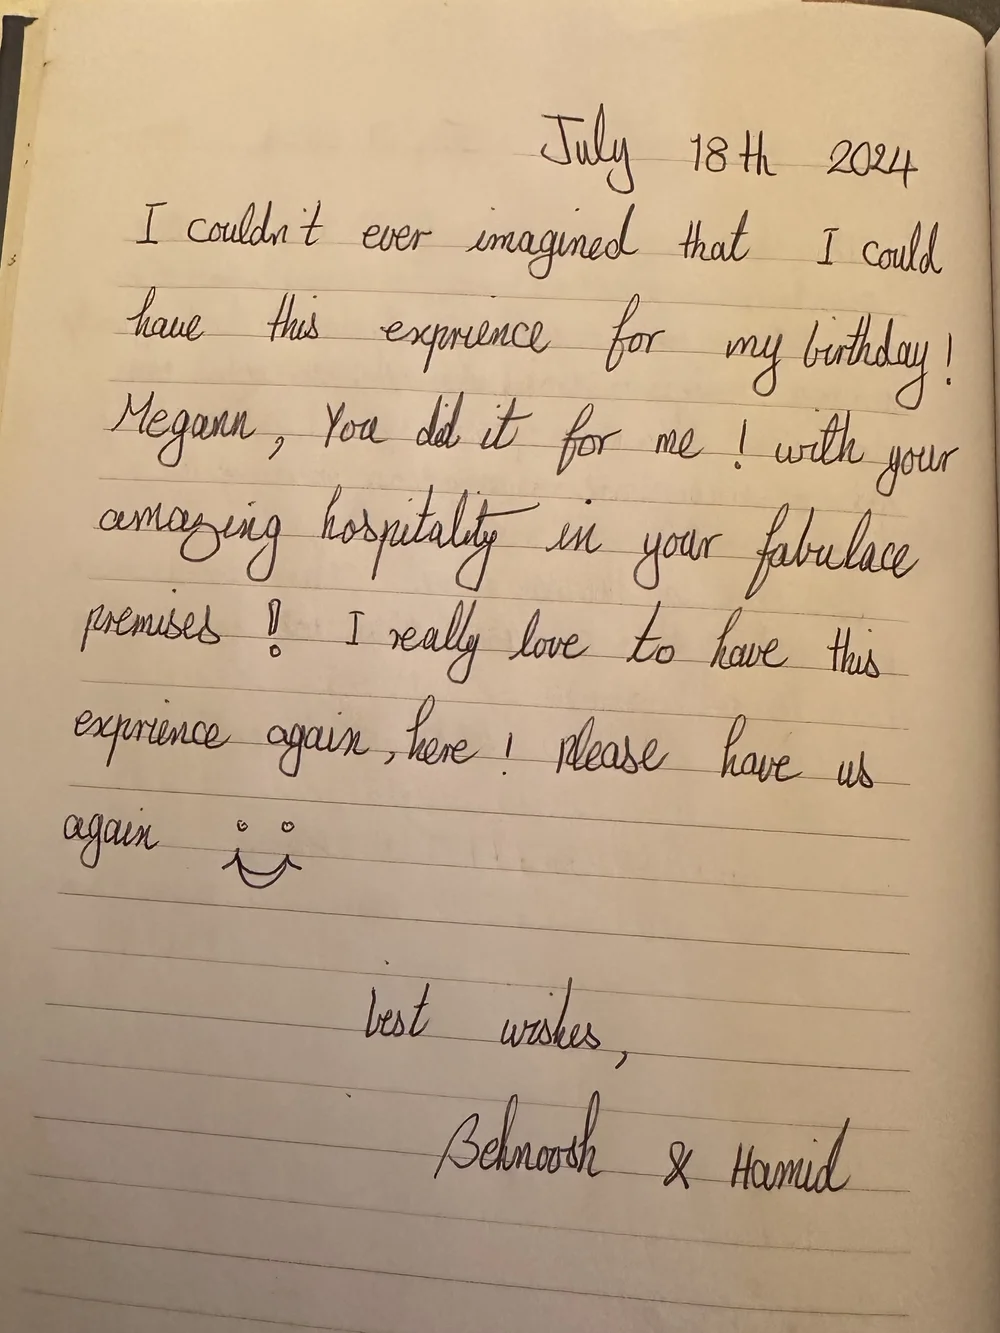 July 18th 2024
I couldn't ever imagined that I could
have this exprience for my birthday!
Megann, You did it for me! with your
amazing hospitality in your fabulace
premises! I really love to have this
exprience again, here! please have us
again
best wishes,
Behnoosh & Hamid